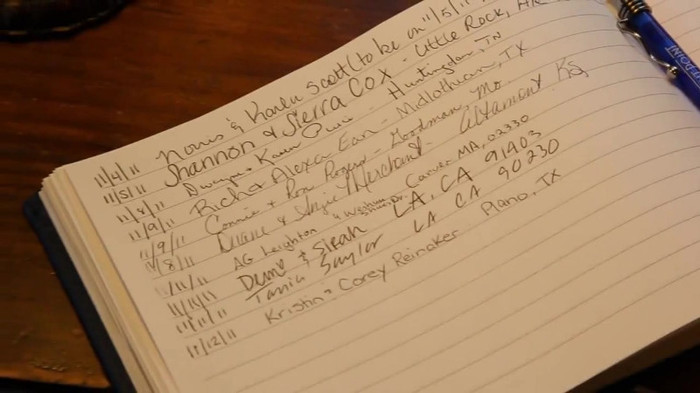 11/4/11 Norris & Karen Scott (to be on 11/5/11
11/5/11 Shannon & Sierra Cox - Little Rock, AR
11/8/11 Dwayne & Karen - Huntingdon, TN
11/9/11 Rich & Alexa Earl - Midlothian, TX
11/9/11 Connie + Ron Rogers - Goodman, Mo
11/8/11 Duane & Angie Merchant - Altamont KS
11/11/11 AG Leighton Carver MA, 02330
11/11/11 Dume & Sarah LA, CA 91403
11/11/11 Tania Saylor LA CA 90230
11/12/11 Kristin & Corey Reinaker Plano, TX
POINT